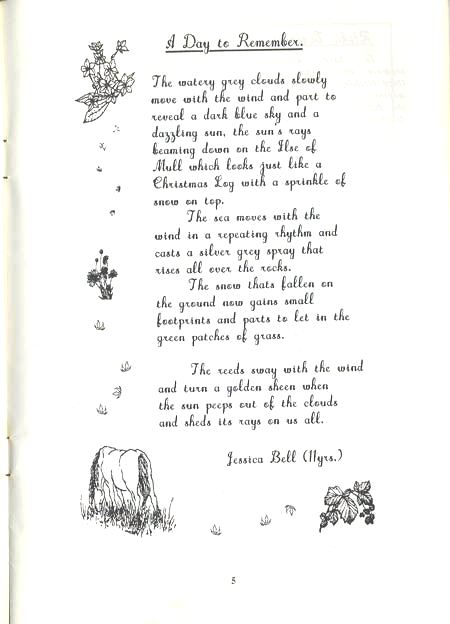 A Day to Remember.
The watery grey clouds slowly
move with the wind and part to
reveal a dark blue sky and a
dazzling sun, the sun's rays
beaming down on the Ilse of
Mull which looks just like a
Christmas Log with a sprinkle of
snow on top.
The sea moves with the
wind in a repeating rhythm and
casts a silver grey spray that
rises all over the rocks.
The snow thats fallen on
the ground now gains small
footprints and parts to let in the
green patches of grass.
The reeds sway with the wind
and turn a golden sheen when
the sun peeps out of the clouds
and sheds its rays on us all.
Jessica Bell (11yrs.)
5